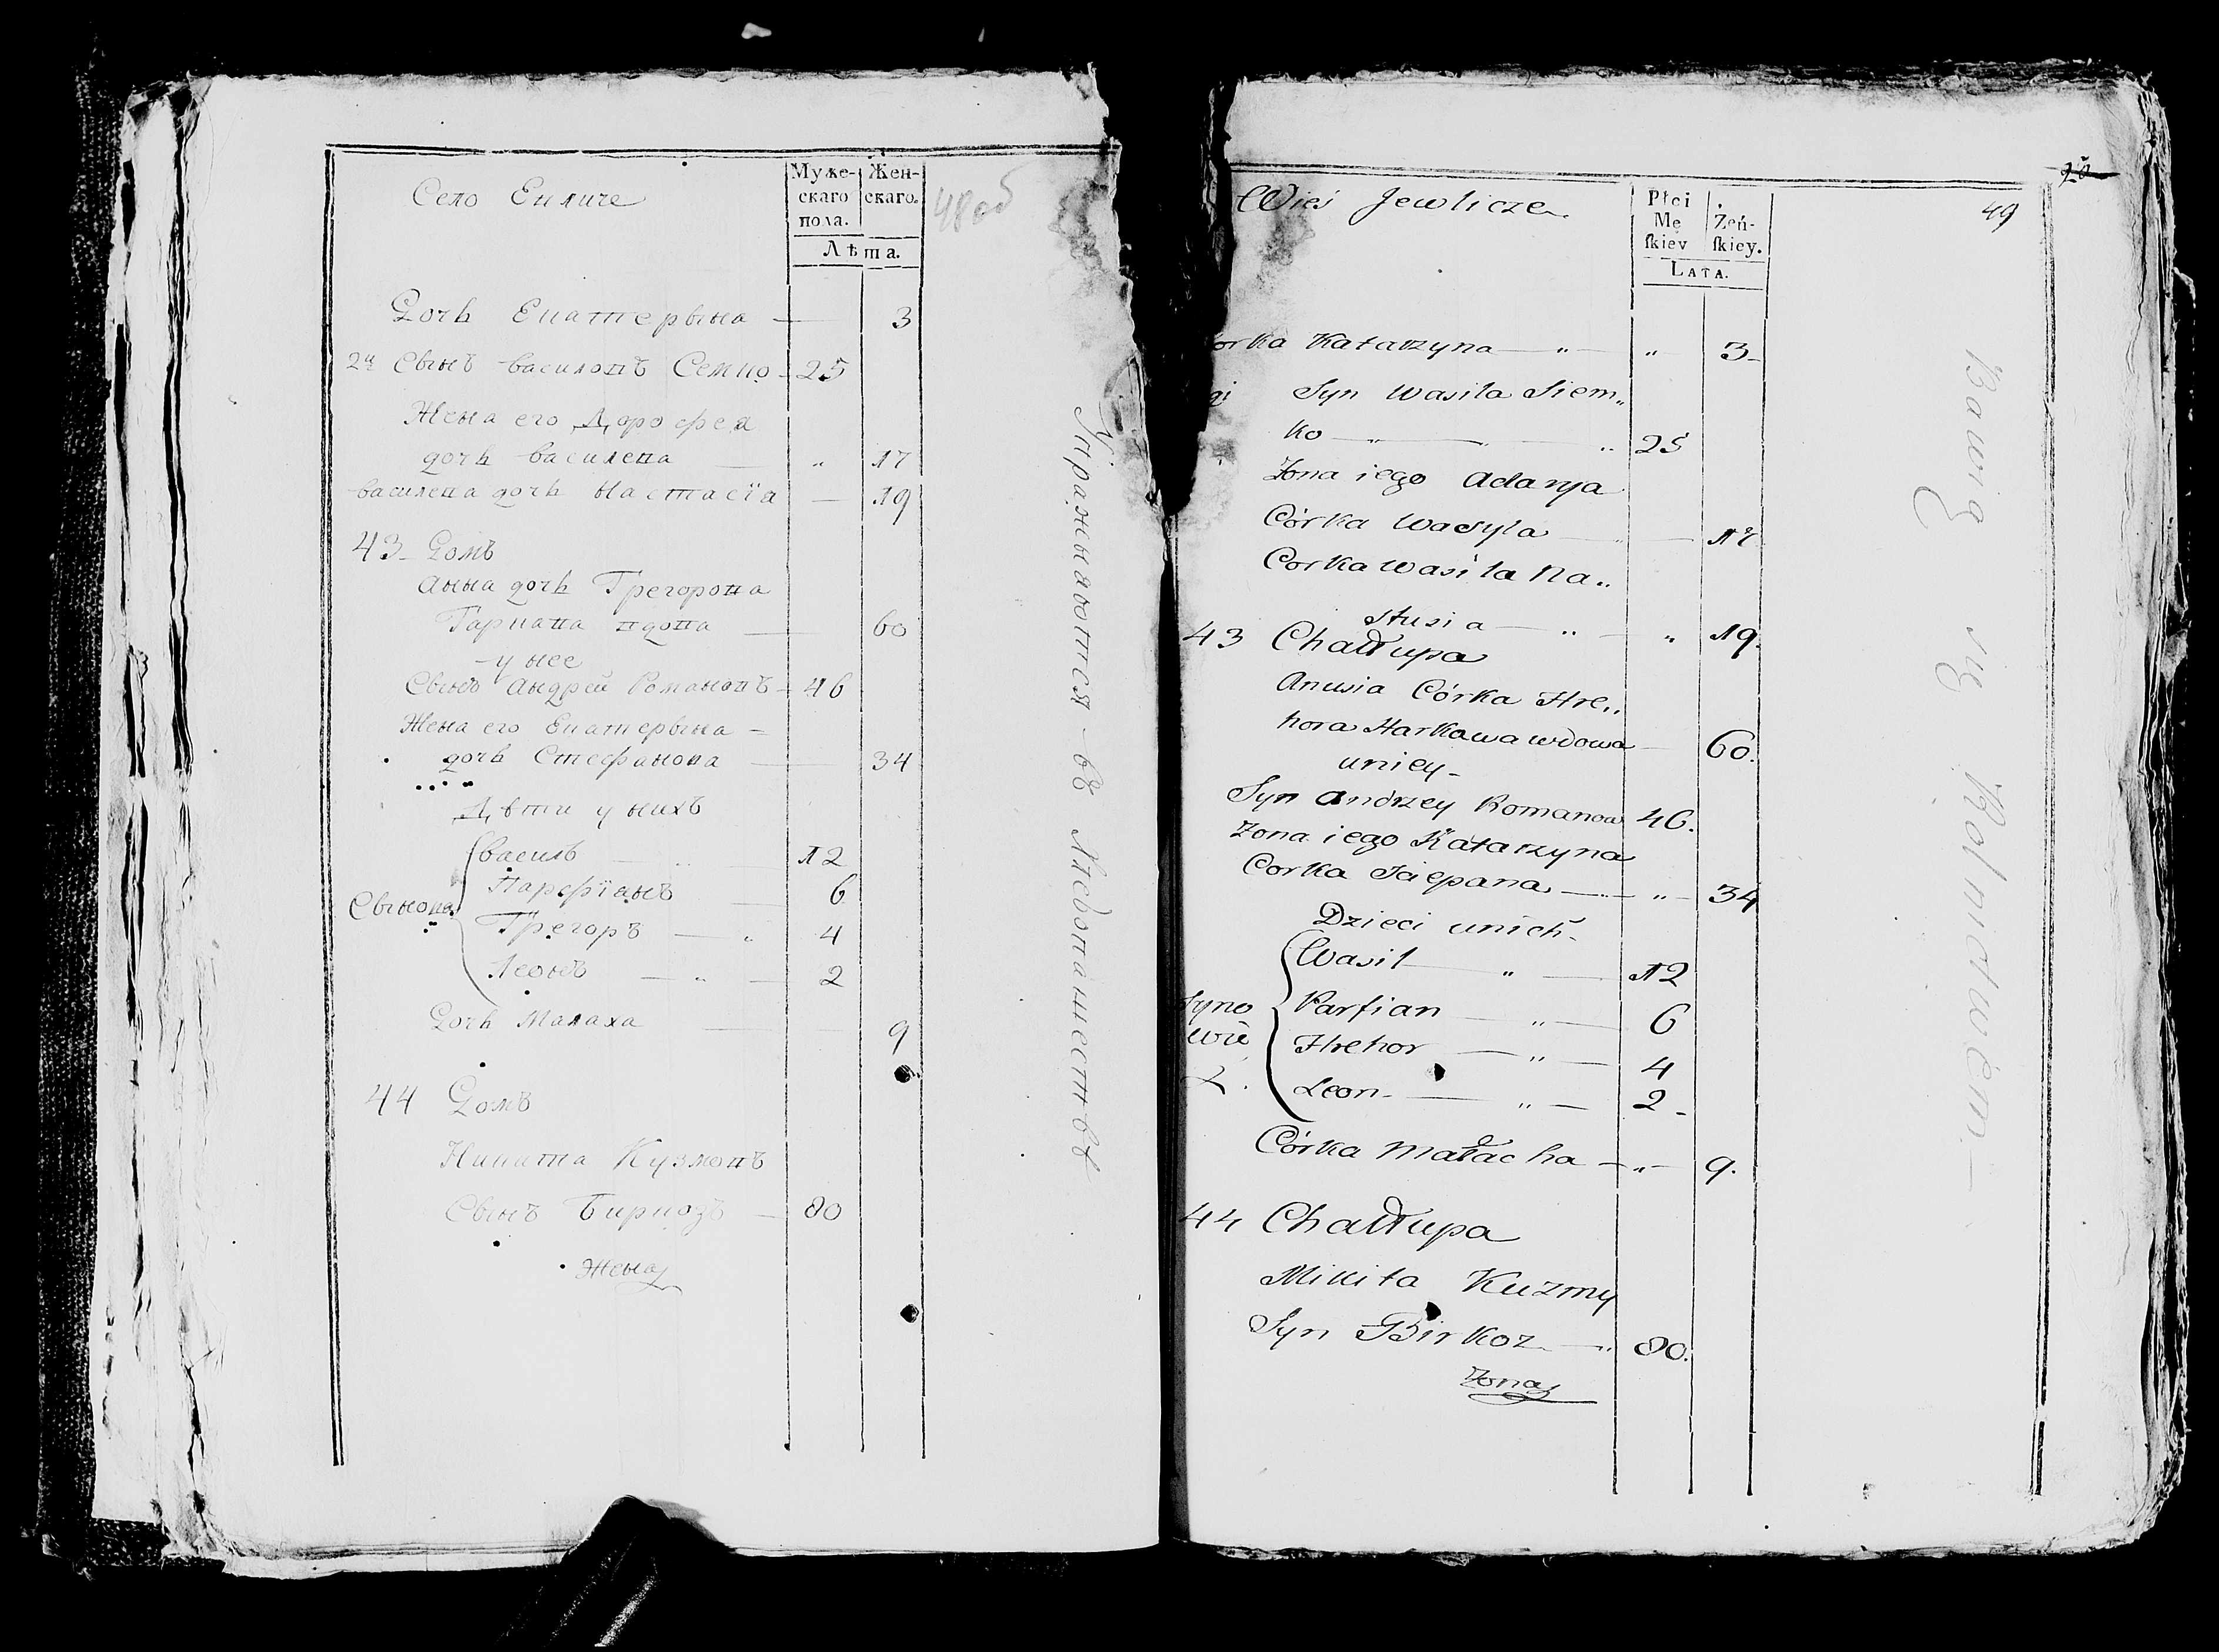 Село Евличе
Муже-
скаго
пола.
Жен-
скаго.
Лѣта.
48об
Дочь Екатерына 3
2й Сынъ василовъ Семко 25
Жена его Дорофея
дочь василева " 17
василева дочь Настасїа 19
43 Домъ
Анна дочь Грегорова
Гаркава вдова 60
у нее
Сынъ Андрей Романовъ 46
Жена его Екатерына
дочь Стефанова 34
Дѣти у нихъ
Сынова
василь 12
Парфїанъ 6
Грегоръ " 4
Леонъ " 2
Дочь Малаха 9
44 Домъ
Никита Кузмовъ
Сынъ Биркозъ 80
Жена
Упражняются въ хлебопашествѣ
Wieś Jewlicze
Płci
Mę
skiey
Żeń-
skiey.
Lata.
49
orka Katarzyna " " 3
gi Syn Wasila Siem„
ko " " 25
Zona iego Adarya
Córka Wasyla 17
Corka Wasila Na„
stusia " " 19.
43 Chałłupa
Anusia Córka Hre„
hora Harkawa wdowa 60.
uniey
Syn Andrzey Romanow 46.
Zona iego Katarzyna
Corka Sciepana " 34
Dzieci unich
Syno
wie
Wasil " 12
Parfian " 6
Hrehor " 4
Leon " 2
Córka Małacha " 9.
44 Chałłupa
Mikita Kuzmy
Syn Birkoz 80.
Zona
Bawią się Rolnictwem